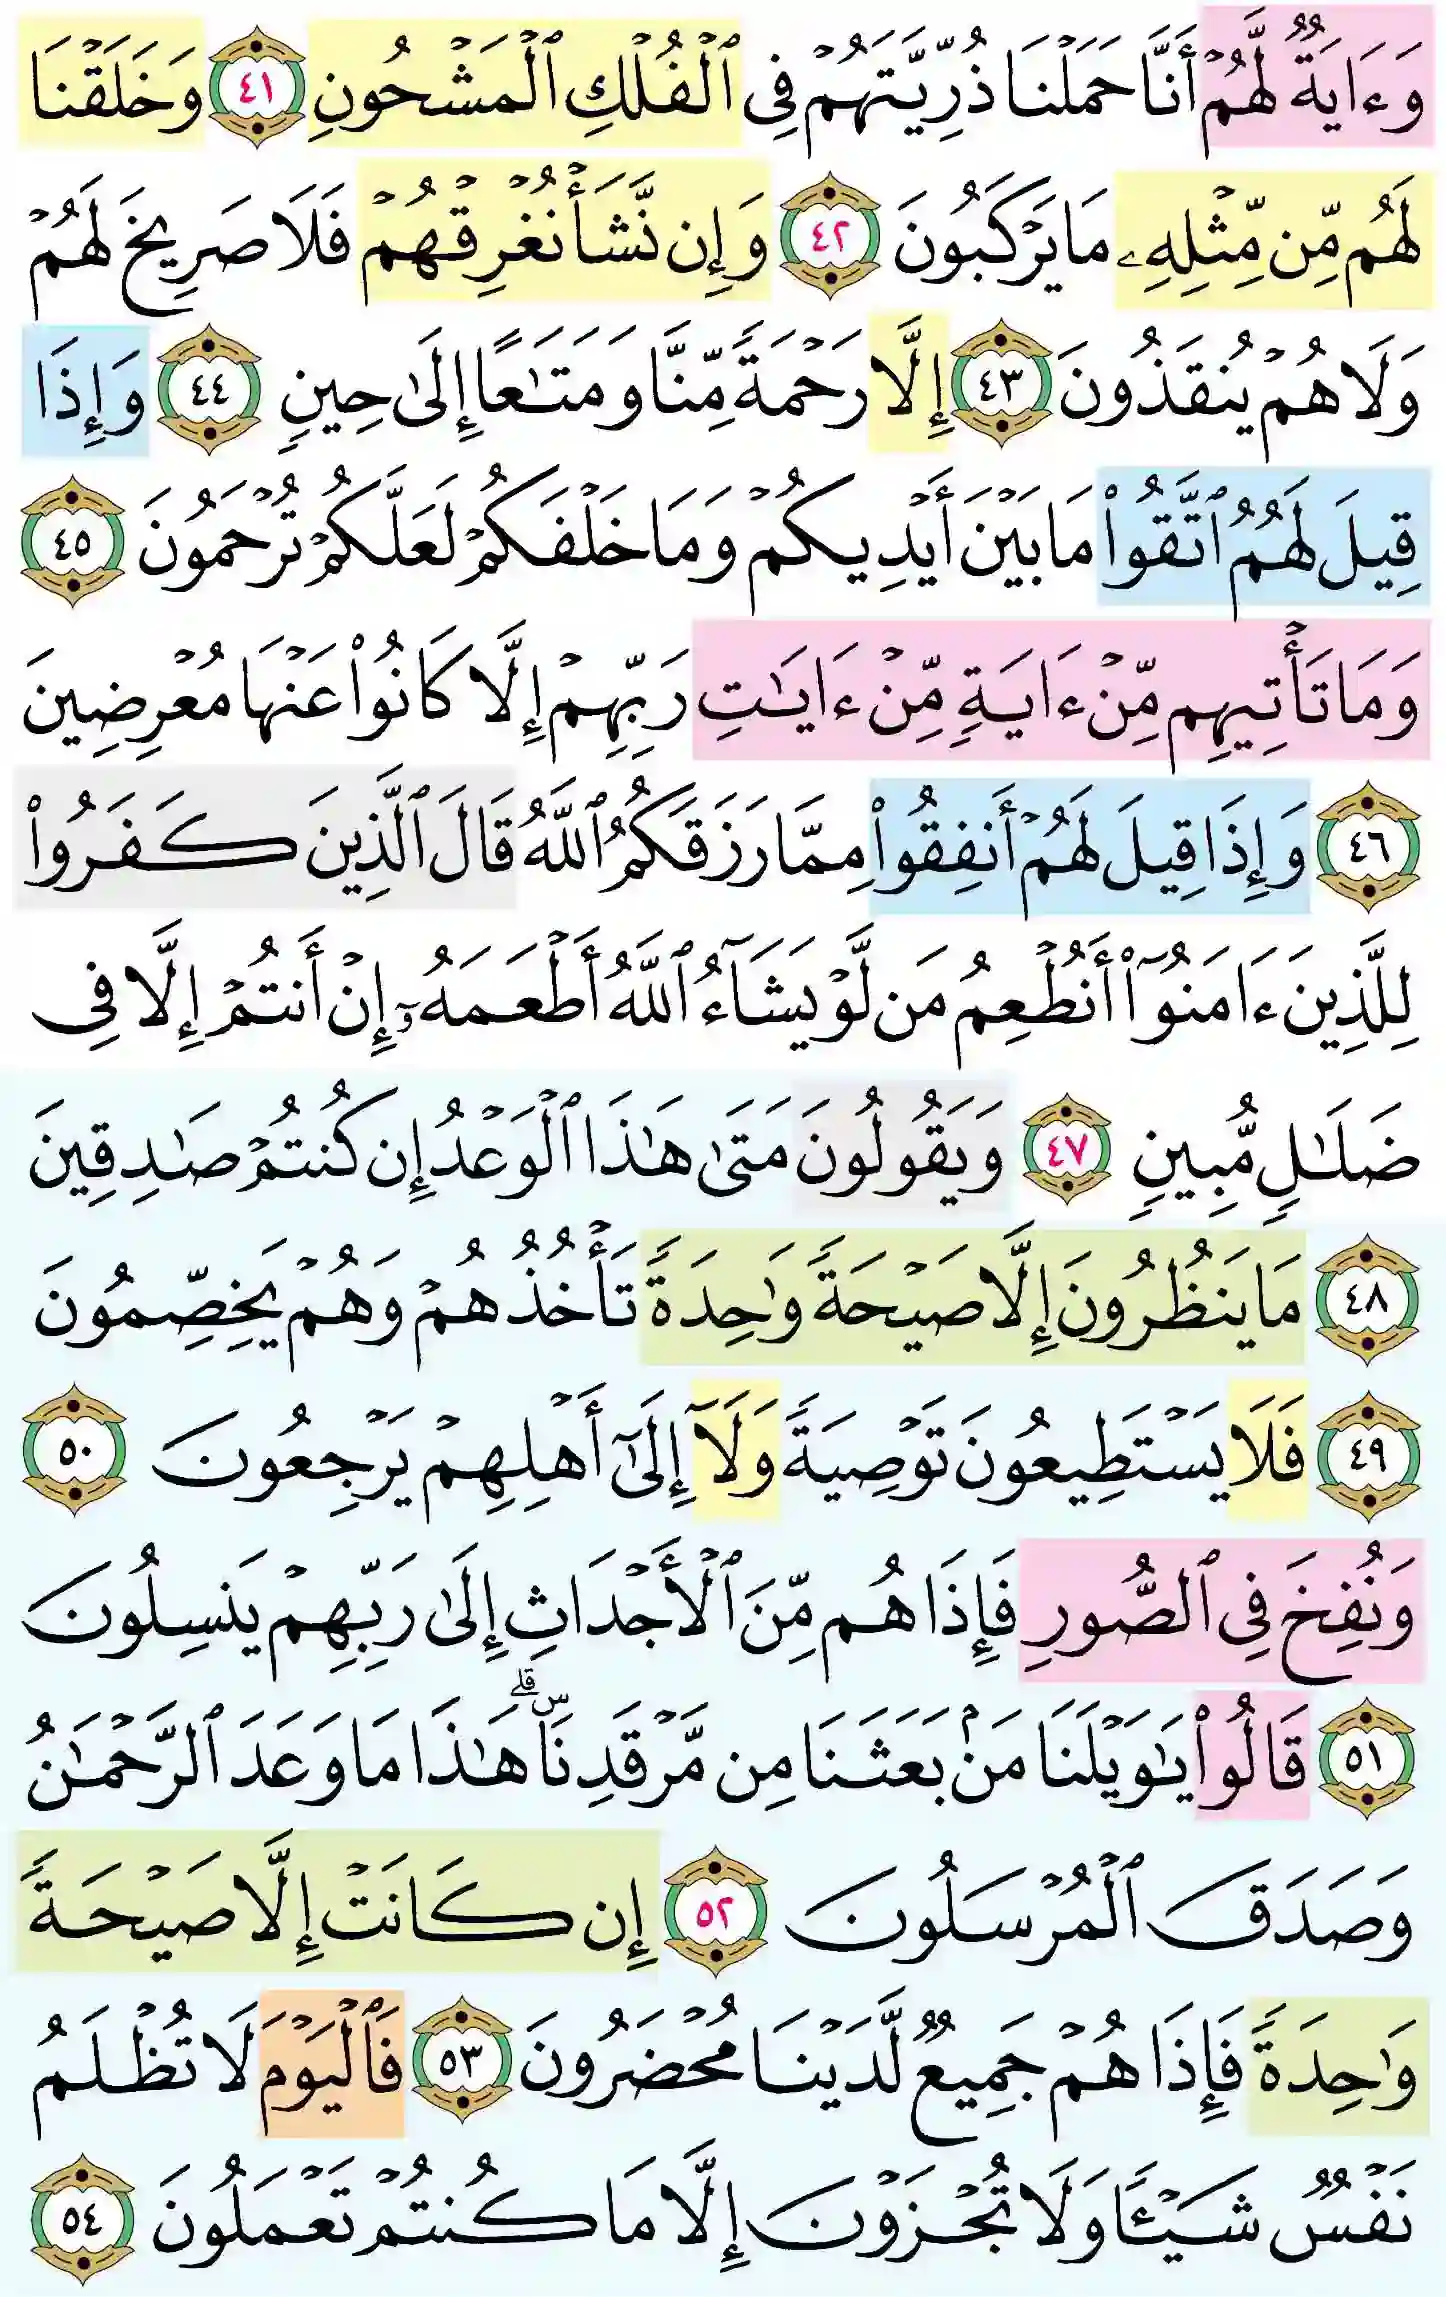 وَءَايَةٌ لَّهُمْ أَنَّا حَمَلْنَا ذُرِّيَّتَهُمْ فِى ٱلْفُلْكِ ٱلْمَشْحُونِ ٤١ وَخَلَقْنَا
لَهُم مِّن مِّثْلِهِۦ مَا يَرْكَبُونَ ٤٢ وَإِن نَّشَأْ نُغْرِقْهُمْ فَلَا صَرِيخَ لَهُمْ
وَلَا هُمْ يُنقَذُونَ ٤٣ إِلَّا رَحْمَةً مِّنَّا وَمَتَـٰعًا إِلَىٰ حِينٍ ٤٤ وَإِذَا
قِيلَ لَهُمُ ٱتَّقُوا۟ مَا بَيْنَ أَيْدِيكُمْ وَمَا خَلْفَكُمْ لَعَلَّكُمْ تُرْحَمُونَ ٤٥
وَمَا تَأْتِيهِم مِّنْ ءَايَةٍ مِّنْ ءَايَـٰتِ رَبِّهِمْ إِلَّا كَانُوا۟ عَنْهَا مُعْرِضِينَ
٤٦ وَإِذَا قِيلَ لَهُمْ أَنفِقُوا۟ مِمَّا رَزَقَكُمُ ٱللَّهُ قَالَ ٱلَّذِينَ كَفَرُوا۟
لِلَّذِينَ ءَامَنُوٓا۟ أَنُطْعِمُ مَن لَّوْ يَشَآءُ ٱللَّهُ أَطْعَمَهُۥٓ إِنْ أَنتُمْ إِلَّا فِى
ضَلَـٰلٍ مُّبِينٍ ٤٧ وَيَقُولُونَ مَتَىٰ هَـٰذَا ٱلْوَعْدُ إِن كُنتُمْ صَـٰدِقِينَ
٤٨ مَا يَنظُرُونَ إِلَّا صَيْحَةً وَٰحِدَةً تَأْخُذُهُمْ وَهُمْ يَخِصِّمُونَ
٤٩ فَلَا يَسْتَطِيعُونَ تَوْصِيَةً وَلَآ إِلَىٰٓ أَهْلِهِمْ يَرْجِعُونَ ٥٠
وَنُفِخَ فِى ٱلصُّورِ فَإِذَا هُم مِّنَ ٱلْأَجْدَاثِ إِلَىٰ رَبِّهِمْ يَنسِلُونَ
٥١ قَالُوا۟ يَـٰوَيْلَنَا مَنۢ بَعَثَنَا مِن مَّرْقَدِنَا ۜ ۗ هَـٰذَا مَا وَعَدَ ٱلرَّحْمَـٰنُ
وَصَدَقَ ٱلْمُرْسَلُونَ ٥٢ إِن كَانَتْ إِلَّا صَيْحَةً
وَٰحِدَةً فَإِذَا هُمْ جَمِيعٌ لَّدَيْنَا مُحْضَرُونَ ٥٣ فَٱلْيَوْمَ لَا تُظْلَمُ
نَفْسٌ شَيْـًٔا وَلَا تُجْزَوْنَ إِلَّا مَا كُنتُمْ تَعْمَلُونَ ٥٤